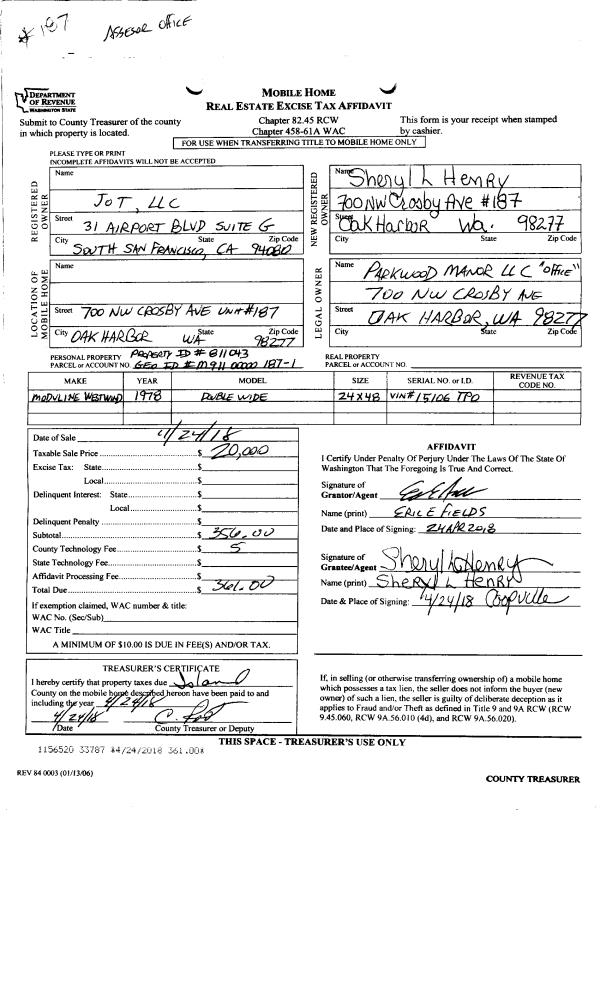 # 187
ASSESOR OFFICE
DEPARTMENT
OF REVENUE
WASHINGTON STATE
MOBILE HOME
REAL ESTATE EXCISE TAX AFFIDAVIT
Submit to County Treasurer of the county
in which property is located.
Chapter 82.45 RCW
Chapter 458-61A WAC
This form is your receipt when stamped
by cashier.
FOR USE WHEN TRANSFERRING TITLE TO MOBILE HOME ONLY
PLEASE TYPE OR PRINT
INCOMPLETE AFFIDAVITS WILL NOT BE ACCEPTED
REGISTERED OWNER
Name
JOT, LLC
Street 31 AIRPORT BLVD SUITE G
City State Zip Code
SOUTH SAN FRANCISCO, CA 94080
NEW REGISTERED OWNER
Name Sheryl L Henry
700 NW Crosby Ave #187
Street Oak Harbor Wa. 98277
City State Zip Code
LOCATION OF MOBILE HOME
Name
Street 700 NW CROSBY AVE UNIT #187
City State Zip Code
OAK HARBOR WA 98277
LEGAL OWNER
Name
PARKWOOD MANOR LLC "OFFICE"
700 NW CROSBY AVE
Street
OAK HARBOR, WA 98277
City State Zip Code
PERSONAL PROPERTY PROPERTY ID # 811043
PARCEL or ACCOUNT NO. GEO ID # M911 00000 187-1
REAL PROPERTY
PARCEL or ACCOUNT NO.
MAKE YEAR MODEL SIZE SERIAL NO. or I.D. REVENUE TAX CODE NO.
MODULINE WESTWIND 1978 DOUBLE WIDE 24 X 48 VIN# 15106 TPO
Date of Sale 4/24/18
Taxable Sale Price $ 20,000
Excise Tax: State $
Local $
Delinquent Interest: State $
Local $
Delinquent Penalty $
Subtotal $ 356.00
County Technology Fee $ 5
State Technology Fee $
Affidavit Processing Fee $
Total Due $ 361.00
If exemption claimed, WAC number & title:
WAC No. (Sec/Sub)
WAC Title
A MINIMUM OF $10.00 IS DUE IN FEE(S) AND/OR TAX.
AFFIDAVIT
I Certify Under Penalty Of Perjury Under The Laws Of The State Of
Washington That The Foregoing Is True And Correct.
Signature of
Grantor/Agent
Name (print) ERIC E FIELDS
Date and Place of Signing: 24 APR 2018
Signature of
Grantee/Agent Sheryl L Henry
Name (print) SHERYL L HENRY
Date & Place of Signing: 4/24/18 Coopville
TREASURER'S CERTIFICATE
I hereby certify that property taxes due Island
County on the mobile home described hereon have been paid to and
including the year 4/24/18
4/24/18
Date County Treasurer or Deputy
If, in selling (or otherwise transferring ownership of) a mobile home
which possesses a tax lien, the seller does not inform the buyer (new
owner) of such a lien, the seller is guilty of deliberate deception as it
applies to Fraud and/or Theft as defined in Title 9 and 9A RCW (RCW
9.45.060, RCW 9A.56.010 (4d), and RCW 9A.56.020).
THIS SPACE - TREASURER'S USE ONLY
1156520 33787 #4/24/2018 361.00*
REV 84 0003 (01/13/06)
COUNTY TREASURER